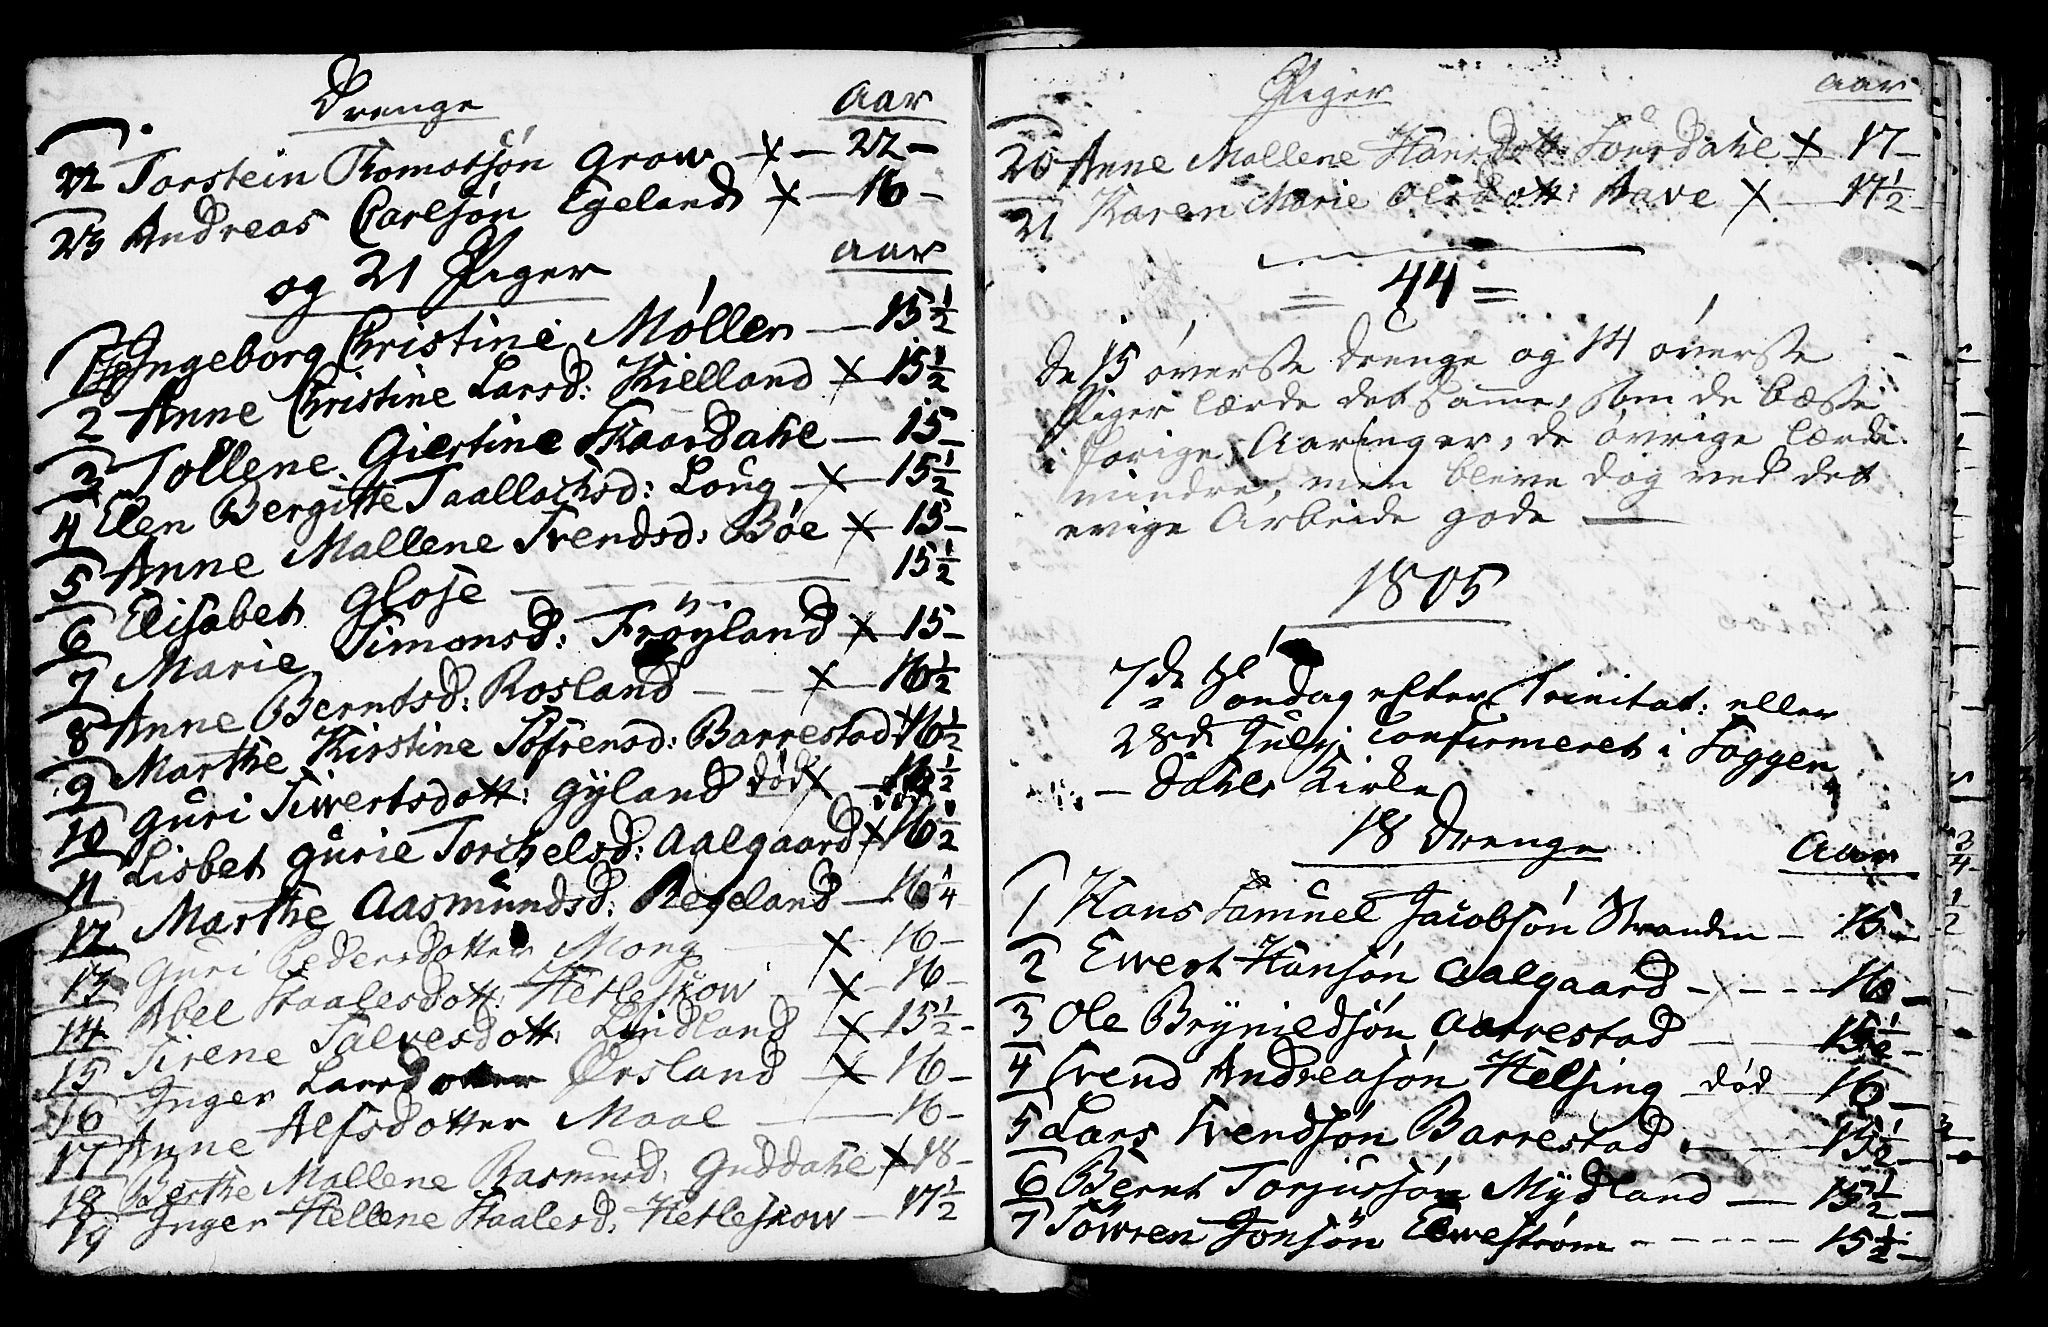 Drenge Aar
22 Torstein Tomassøn Grow x — 22 —
23 Andreas Carlsøn Egeland x — 16 —
og 21 Piger aar
1 Ingeborg Christine Møller — 15 1/2
2 Anne Christine Larsd: Kielland x 15 1/2
3 Tollene Giertine Skaardahl — 15 —
4 Elen Bergitte Taallachsd: Loug — x — 15 1/2
5 Anne Mallene Svendsd: Bøe x 15 —
6 Elisabet Glose — 15 1/2
7 Marie Simonsd: Frøyland x 15 —
8 Anne Berntsd: Rosland — x — 16 1/2
9 Marthe Kirstine Søfrensd: Barrestad x 16 1/2
10 Guri Siwertsdott: Gyland død x — 16 1/2
11 Lisbet Gurie Torchelsd: Aalgaard x 16 1/2
12 Marthe Aasmundsd: Regeland — 16 1/4
13 Guri Pedersdotter Mong x — 16 —
14 Abel Staalesdott: Hetleskow x — 16 —
15 Sirene Salvesdott: Lindland x 15 1/2 —
16 Inger Larsdotter Ørsland x 16 —
17 Anne Alfsdotter Maal — 16 —
18 Berthe Mallene Rasmusd: Guddahl x 18 —
19 Inger Hellene Staalesd: Hetleskow — 17 1/2
Piger aar
20 Anne Mallene Hansdott: Lourdahl x 17 —
21 Karen Marie Olsdott: Aave x — 17 1/2
= 44 =
De 15 øverste Drenge og 14 øverste
Piger lærde det samme, som de beste
i forige Aaringer, de øvrige lærde
mindre, men bleve dog ved det
evige Arbeide gode —
1805
7de Søndag efter Trinitat: eller
28de Julij Confirmeret i Soggen
— dahls Kirke
18 Drenge Aar
1 Hans Samuel Jacobsøn Stranden — 15 —
2 Ewert Hansøn Aalgaard — x — 16 —
3 Ole Brynieldsøn Aarrestad — 15 1/2 —
4 Svend Andreasøn Helsing død 16 —
5 Lars Svendsøn Barrestad — 15 1/2 —
6 Bernt Torjussøn Mydland — 15 1/2 —
7 Søwren Jonsøn Elwestrøm — 15 1/2 —